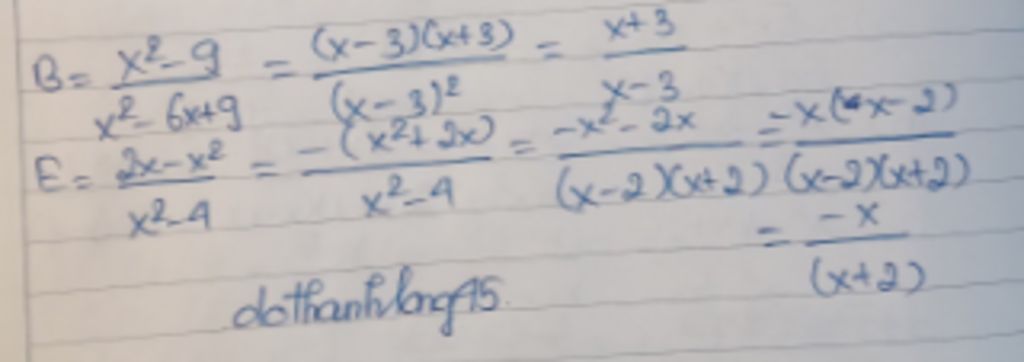 B = \frac{x^2-9}{x^2-6x+9} = \frac{(x-3)(x+3)}{(x-3)^2} = \frac{x+3}{x-3}
E = \frac{2x-x^2}{x^2-4} = \frac{-(x^2+2x)}{x^2-4} = \frac{-x^2-2x}{(x-2)(x+2)} = \frac{-x(x-2)}{(x-2)(x+2)}
= \frac{-x}{(x+2)}
dothanhlong45